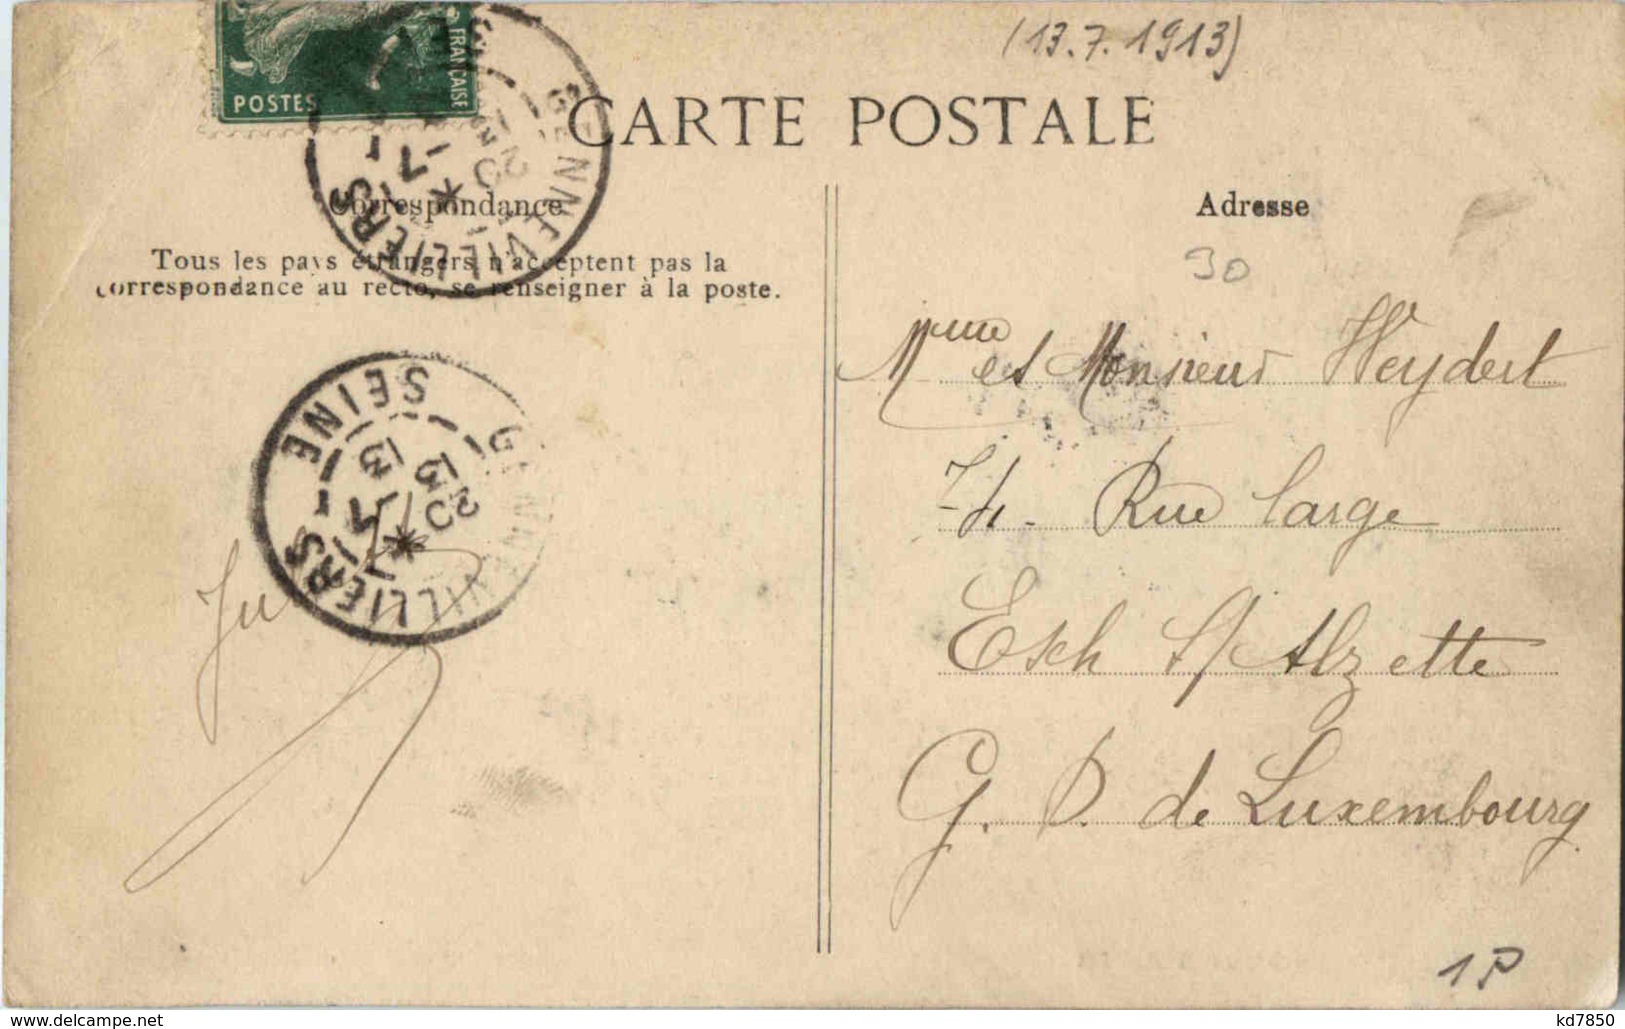 (13.7.1913)
FRANÇAISE
POSTES
GENNEVILLIERS
CARTE POSTALE
Correspondance
Tous les pays étrangers n'acceptent pas la
correspondance au recto, se renseigner à la poste.
GENNEVILLIERS SEINE
Adresse
30
Mme et Monsieur Weydert
74. Rue large
Esch S/Alzette
G. D. de Luxembourg
1P
www.delcampe.net
kd7850